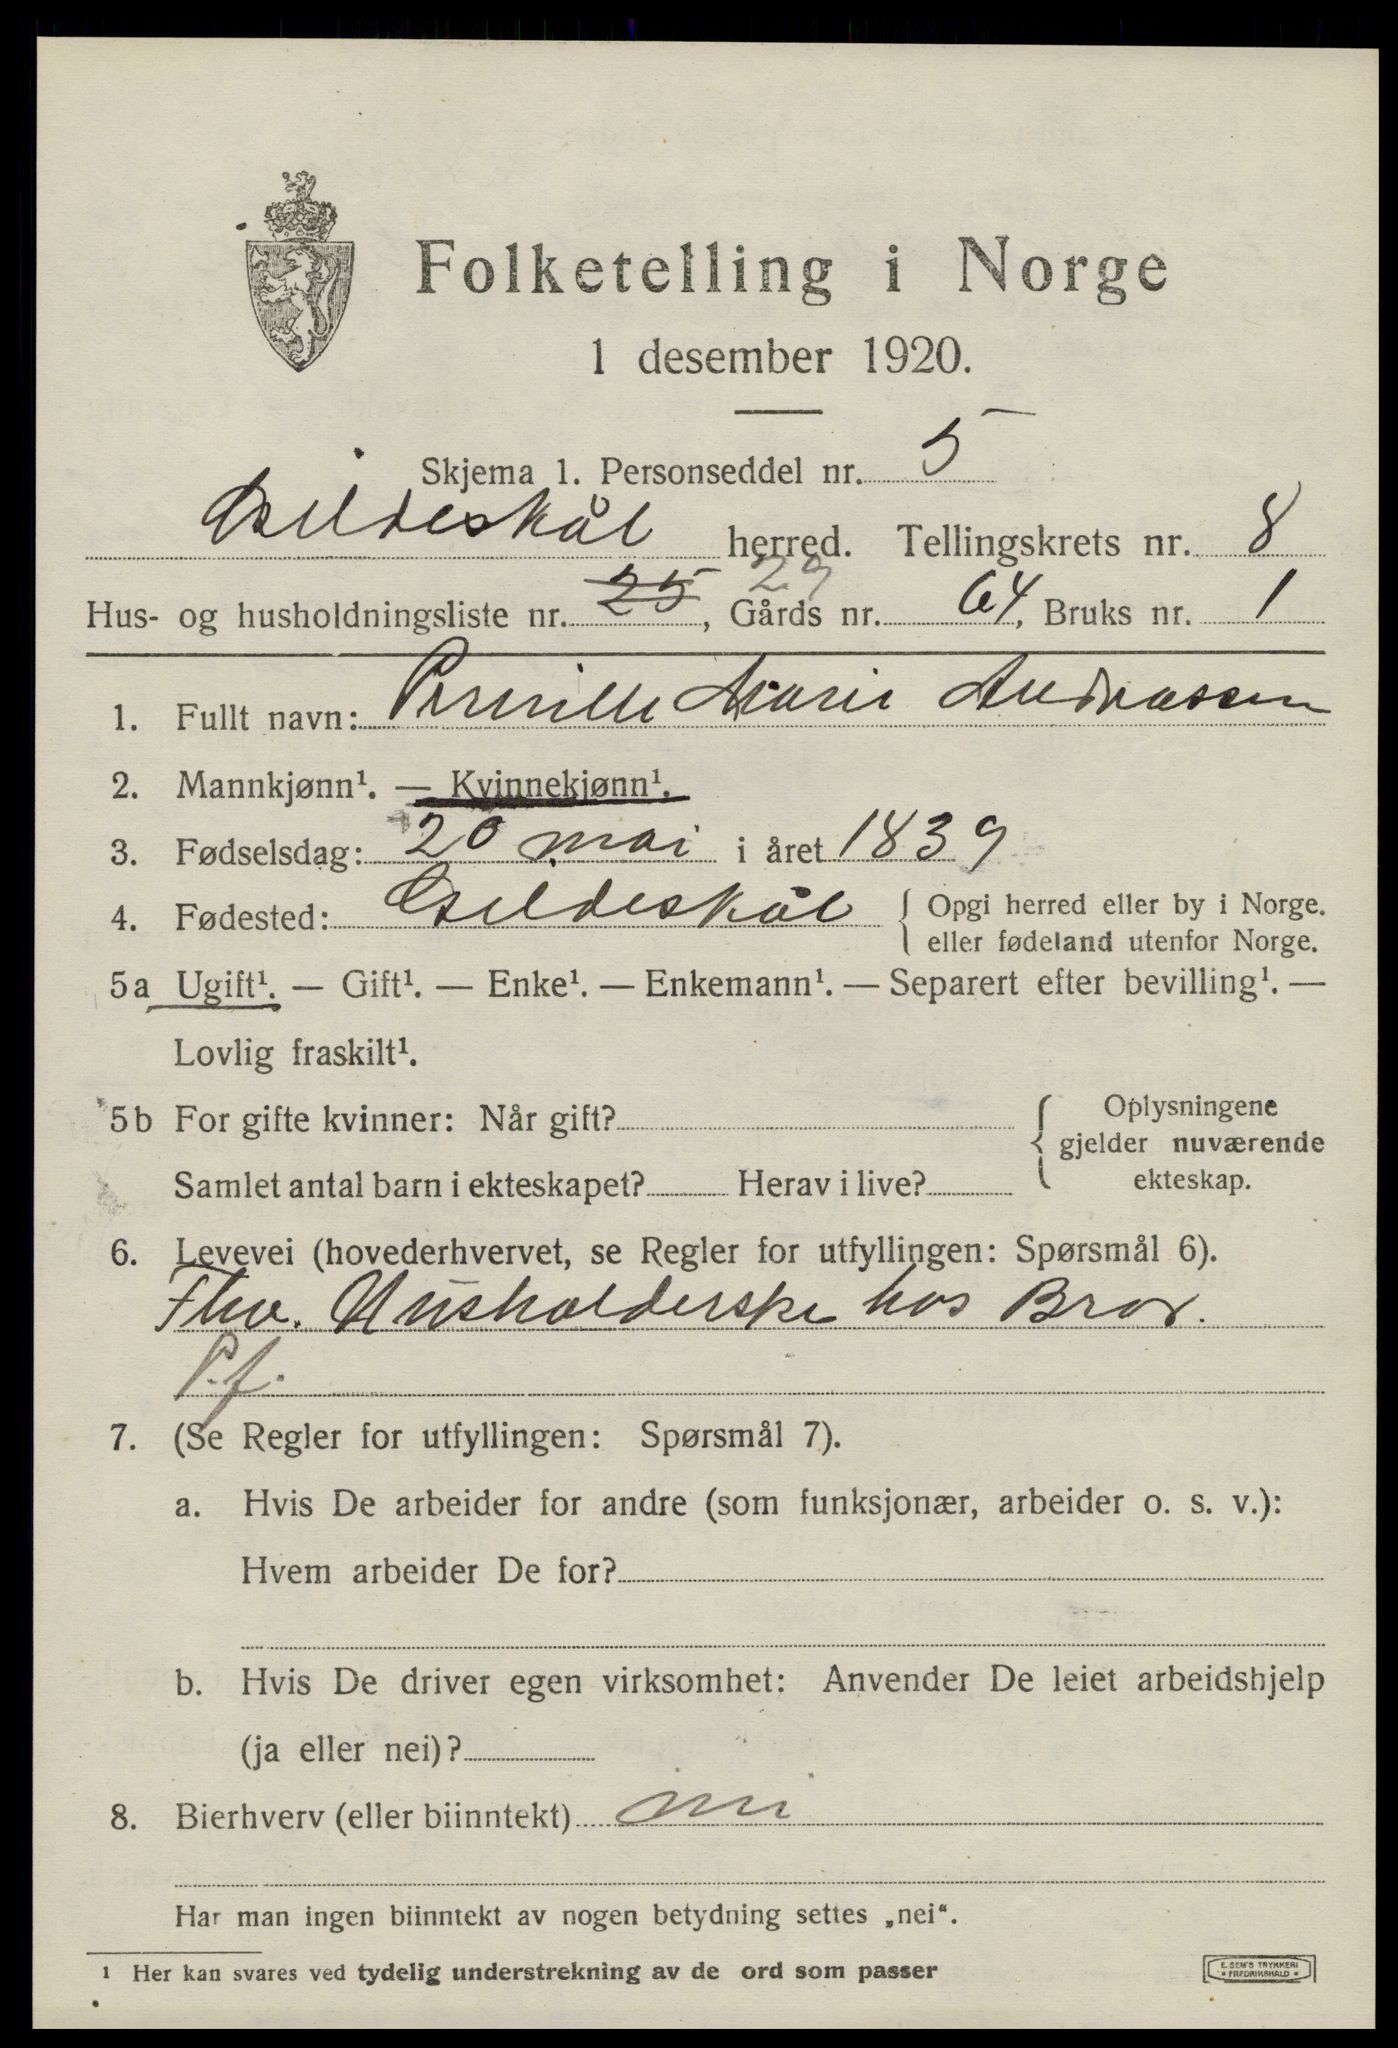 Folketelling i Norge
1 desember 1920.
Skjema 1. Personseddel nr. 5
Gildeskål herred. Tellingskrets nr. 8
29
Hus- og husholdningsliste nr. 25, Gårds nr. 64, Bruks nr. 1
1. Fullt navn: Pernille Marie Andreassen
2. Mannkjønn¹. — Kvinnekjønn¹.
3. Fødselsdag: 20 mai i året 1839
4. Fødested: Gildeskål { Opgi herred eller by i Norge.
eller fødeland utenfor Norge.
5a Ugift¹. — Gift¹. — Enke¹. — Enkemann¹. — Separert efter bevilling¹. —
Lovlig fraskilt¹.
5b For gifte kvinner: Når gift? { Oplysningene
gjelder nuværende
Samlet antal barn i ekteskapet? Herav i live? ekteskap.
6. Levevei (hovederhvervet, se Regler for utfyllingen: Spørsmål 6).
Husholderske hos Bror.
P.f.
7. (Se Regler for utfyllingen: Spørsmål 7).
a. Hvis De arbeider for andre (som funksjonær, arbeider o. s. v.):
Hvem arbeider De for?
b. Hvis De driver egen virksomhet: Anvender De leiet arbeidshjelp
(ja eller nei)?
8. Bierhverv (eller biinntekt) nei
Har man ingen biinntekt av nogen betydning settes „nei“.
¹ Her kan svares ved tydelig understrekning av de ord som passer
E. SEM'S TRYKKERI
FREDRIKSHALD